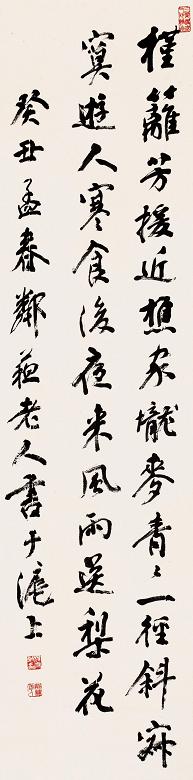 槿籬芳援近樵家壠麥青〻一徑斜寂
寞遊人寒食後夜来風雨送梨花
癸丑孟春鄰蘇老人書于滬上